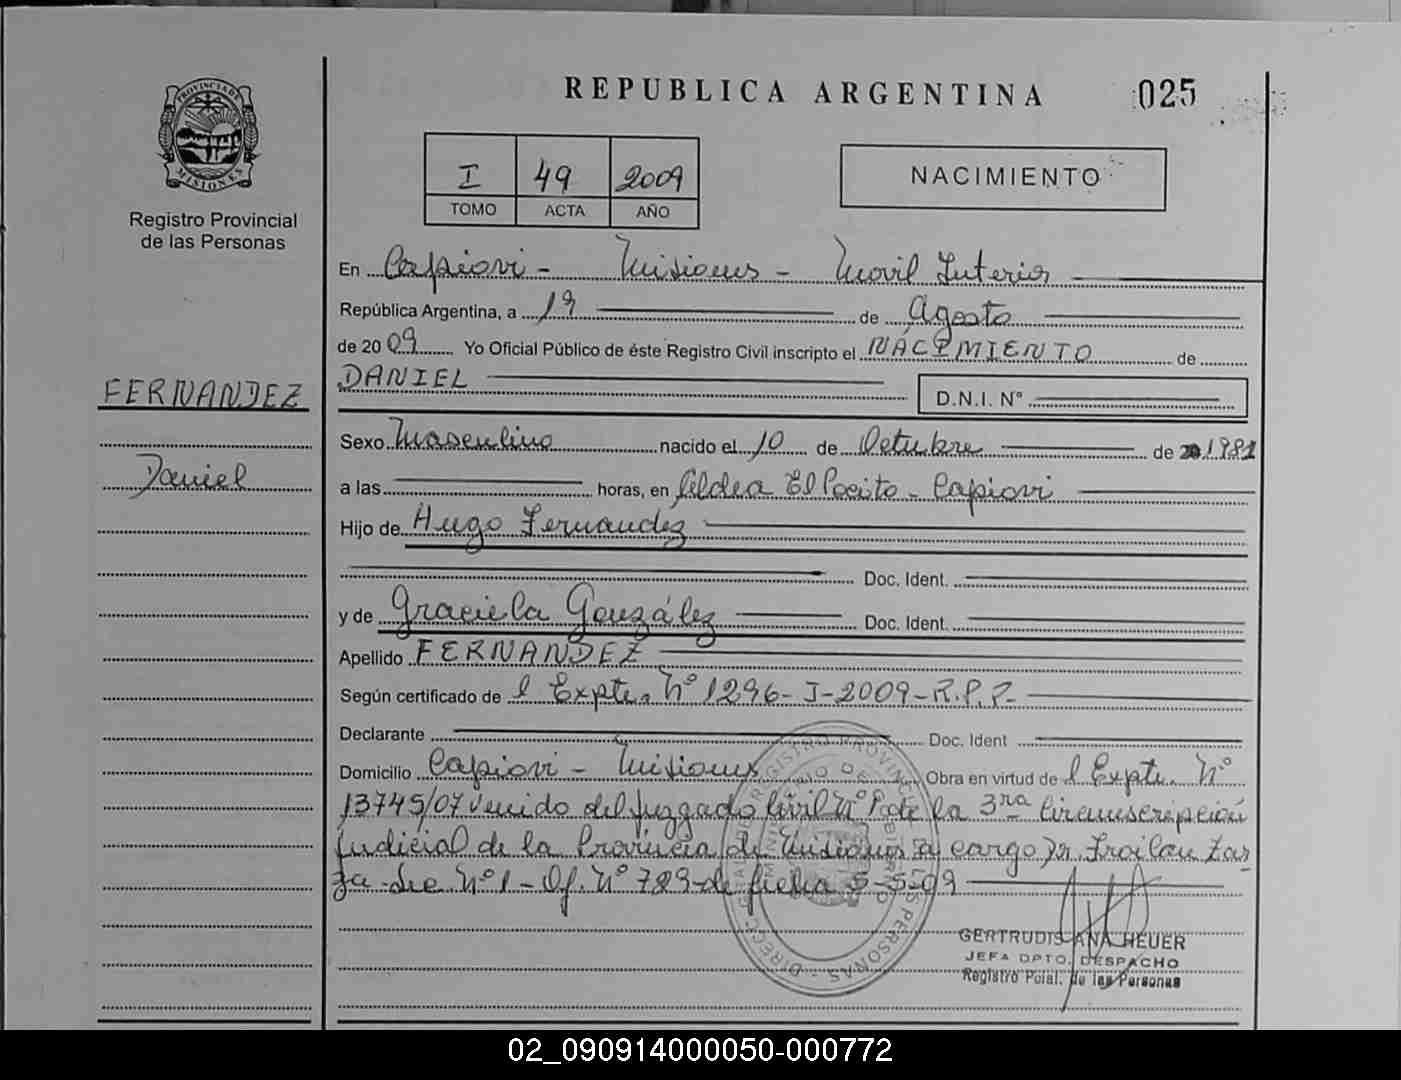 REPUBLICA ARGENTINA
025
PROVINCIA DE
MISIONES
Registro Provincial
de las Personas
I 49 2009
TOMO ACTA AÑO
NACIMIENTO
En Capiovi - Misiones - Movil Interior
República Argentina, a 19 de Agosto
de 2009 Yo Oficial Público de éste Registro Civil inscripto el NACIMIENTO de
DANIEL
D.N.I. Nº
FERNANDEZ
Daniel
Sexo Masculino nacido el 10 de Octubre de 1981
a las horas, en Aldea El Pocito - Capiovi
Hijo de Hugo Fernandez
Doc. Ident.
y de Graciela González Doc. Ident.
Apellido FERNANDEZ
Según certificado de l Expte. Nº 1296-I-2009-R.P.P.
Declarante Doc. Ident
Domicilio Capiovi - Misiones Obra en virtud de l Expte. Nº
13745/07 venido del Juzgado Civil Nº de la 3ra Circunscripción
Judicial de la Provincia de Misiones a cargo Dr. Froilan Zar
za - Sec Nº 1 - Of. Nº 789 - de fecha 5-5-09
GERTRUDIS ANA HEUER
JEFA DPTO. DESPACHO
Registro Pcial. de las Personas
02_090914000050-000772